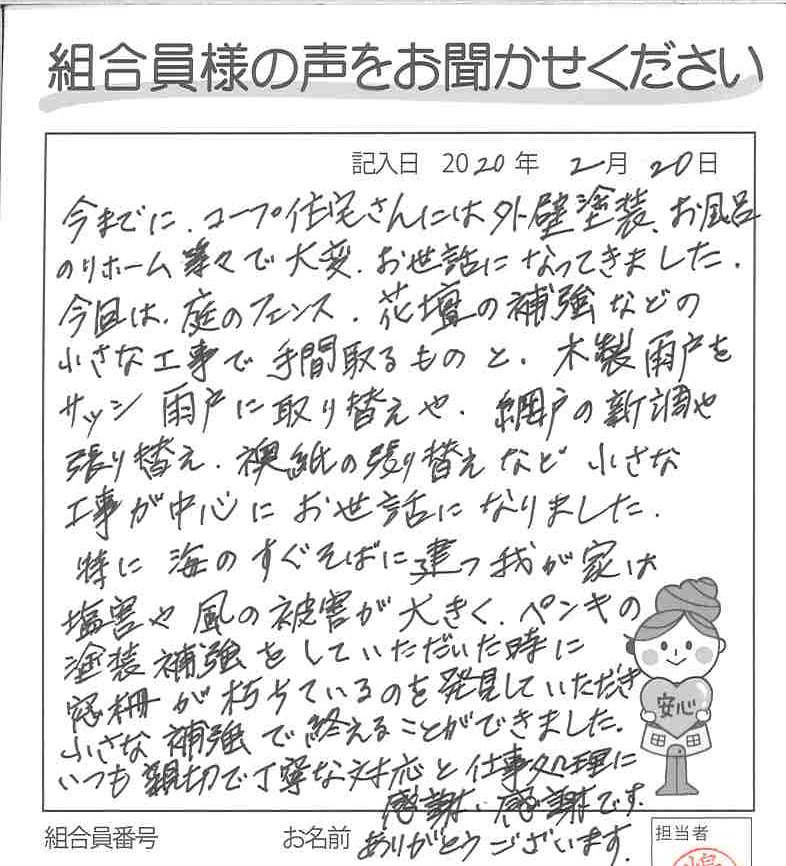 組合員様の声をお聞かせください
記入日 2020年 2月 20日
今までに、コープ住宅さんには外壁塗装、お風呂
のリホーム等々で大変、お世話になってきました。
今回は、庭のフェンス、花壇の補強などの
小さな工事で手間取るものと、木製雨戸を
サッシ雨戸に取り替えや、網戸の新調や
張り替え、襖紙の張り替えなど小さな
工事が中心にお世話になりました。
特に海のすぐそばに建つ我が家は
塩害や風の被害が大きく、ペンキの
塗装補強をしていただいた時に
窓柵が朽ちているのを発見していただき
小さな補強で終えることができました。
いつも親切で丁寧な対応と仕事処理に
感謝、感謝です。
ありがとうございます。
安心
組合員番号 お名前 担当者